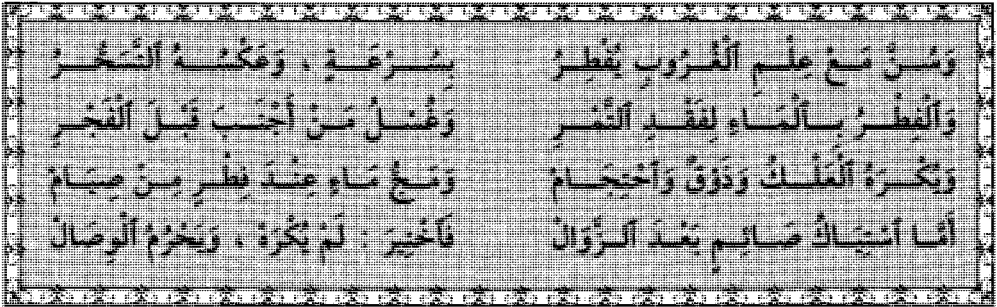 وَسُنَّ مَعْ عِلْمِ ٱلْغُرُوبِ يُفْطِرُ بِسُرْعَةٍ ، وَعَكْسُهُ ٱلتَّسَحُّرُ
وَٱلْفِطْرُ بِٱلْمَاءِ لِفَقْدِ ٱلتَّمْرِ وَغُسْلُ مَنْ أَجْنَبَ قَبْلَ ٱلْفَجْرِ
وَيُكْرَهُ ٱلْعَلْكُ وَذَوْقٌ وَٱحْتِجَامْ وَمَجُّ مَاءٍ عِنْدَ فِطْرٍ مِنْ صِيَامْ
أَمَّا ٱسْتِيَاكُ صَائِمٍ بَعْدَ ٱلزَّوَالْ فَٱخْتِيرَ : لَمْ يُكْرَهْ ، وَيَحْرُمُ ٱلْوِصَالْ